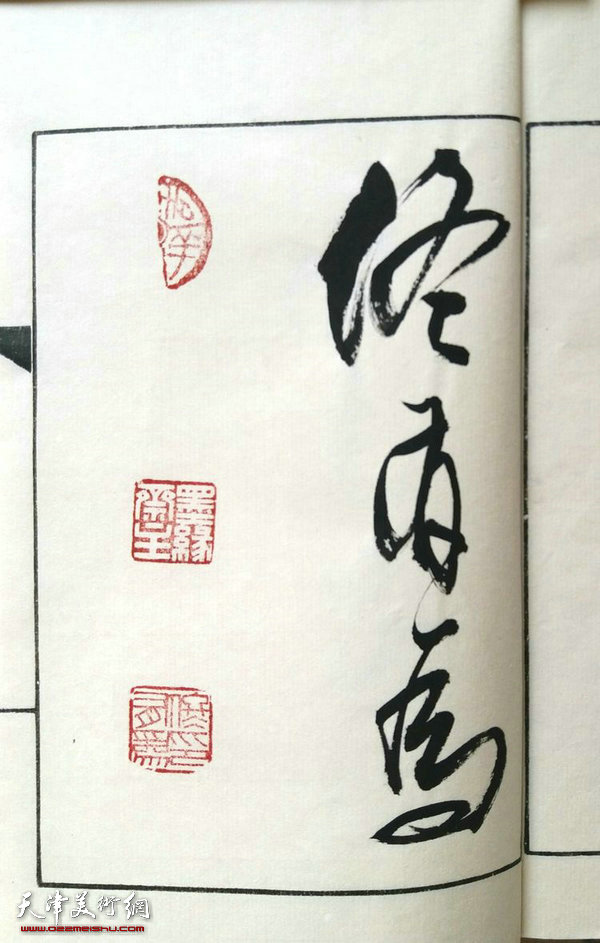 佟有為
墨緣齋主
天津美術網
www.022meishu.com